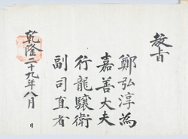 教旨
鄭弘淳為
嘉善大夫
行龍驤衛
副司直者
乾隆二十九年八月 日